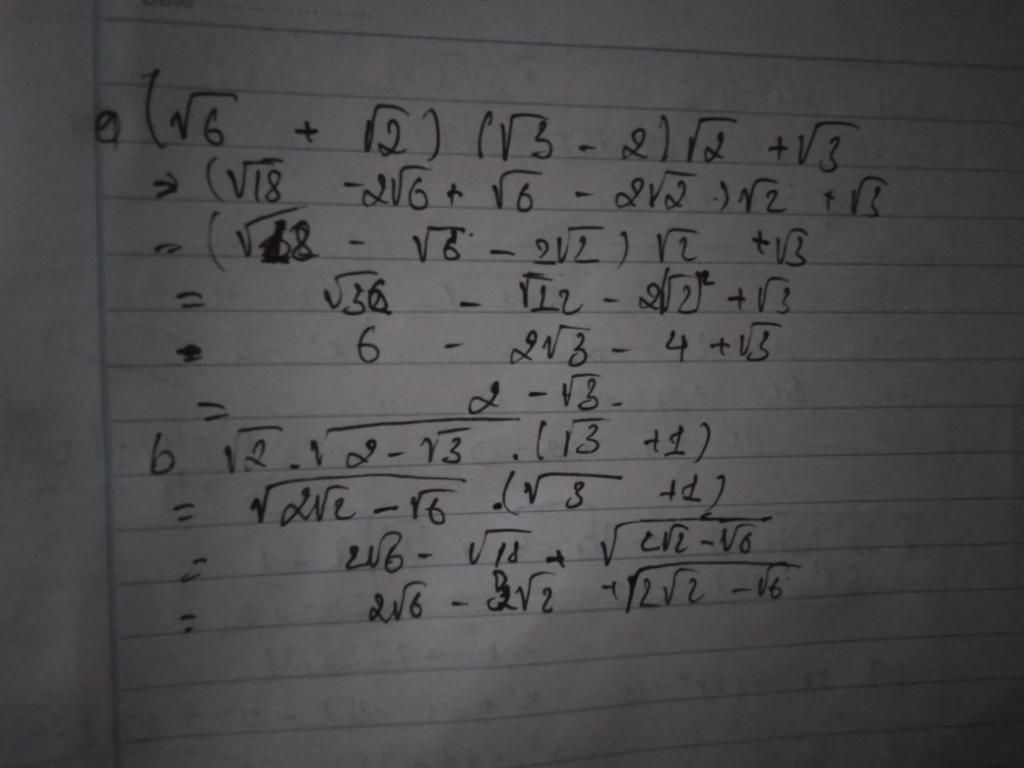 a (√6 + √2) (√3 - 2) √2 + √3
⇒ (√18 - 2√6 + √6 - 2√2.) √2 + √3
= (√18 - √6 - 2√2) √2 + √3
= √36 - √12 - 2(√2)² + √3
= 6 - 2√3 - 4 + √3
= 2 - √3.
b √2 . √(2 - √3) . (√3 + 1)
= √(2√2 - √6) . (√3 + 1)
= 2√6 - √18 + √(2√2 - √6)
= 2√6 - 3√2 + √(2√2 - √6)